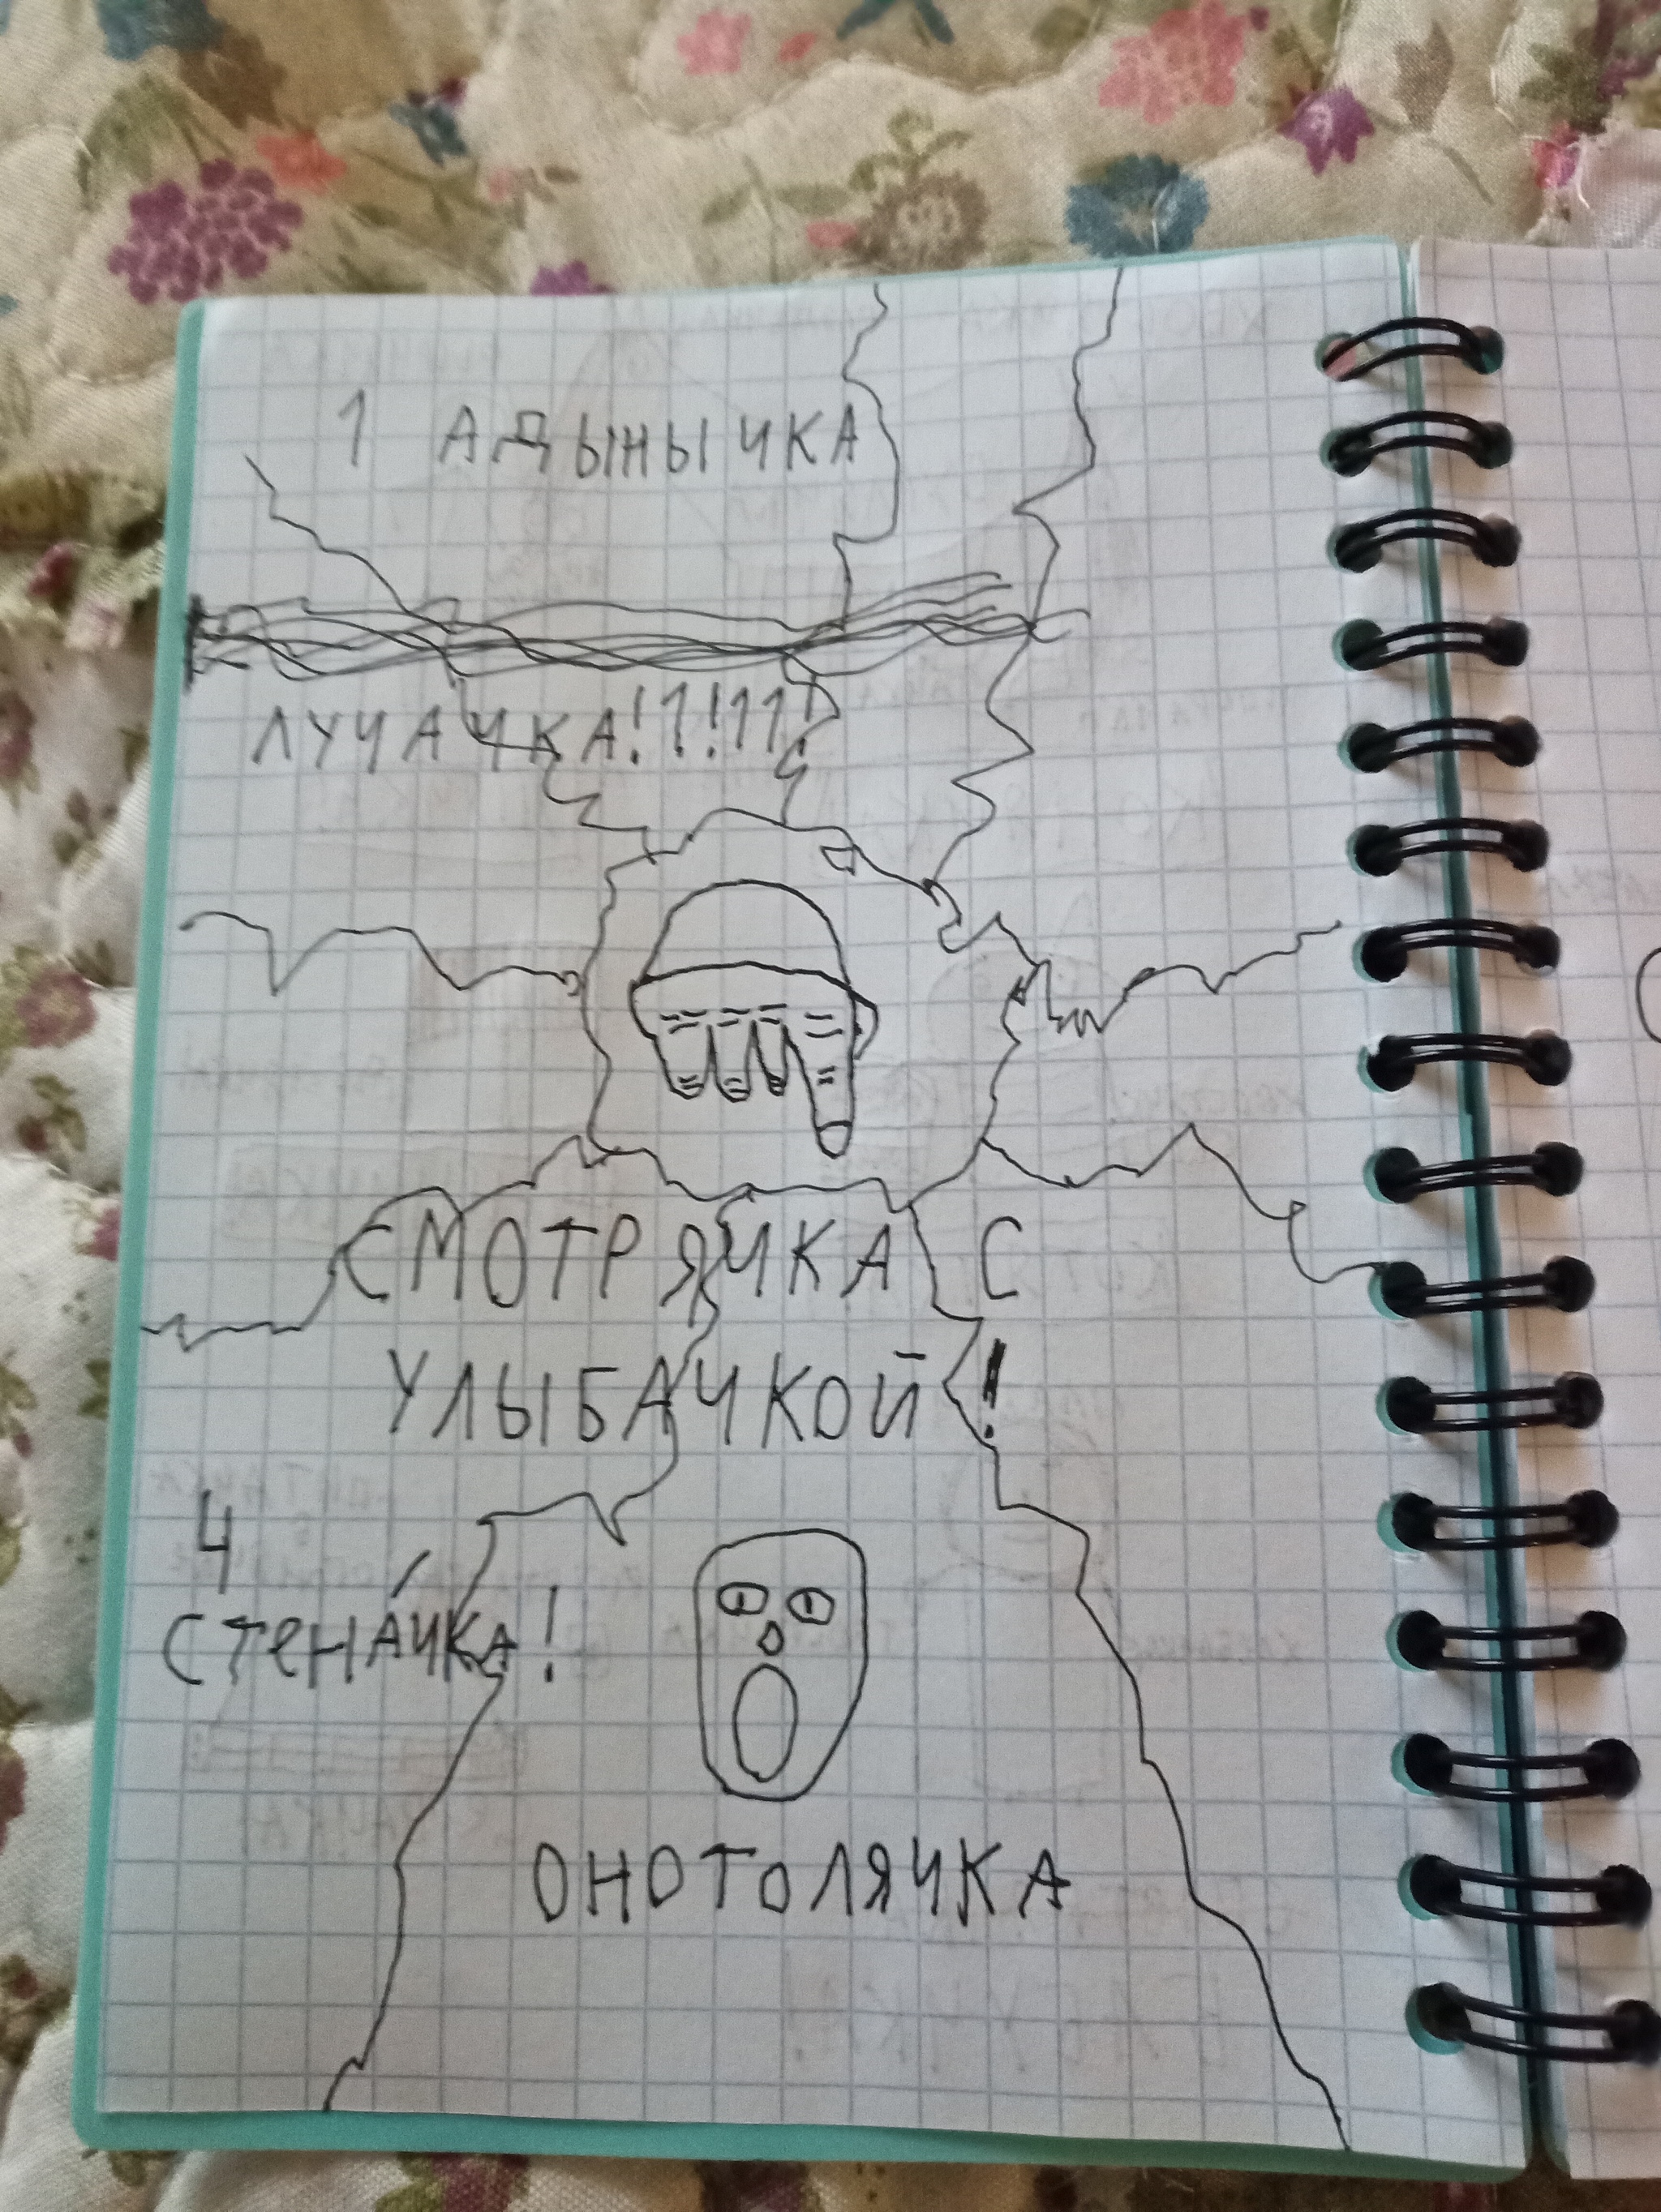 1 АДЫНЫЧКА
ЛУЧАЧКА!1!11!
СМОТРЯЧКА С
УЛЫБАЧКОЙ!
4
СТЕНА́ЧКА!
ОНОТОЛЯЧКА